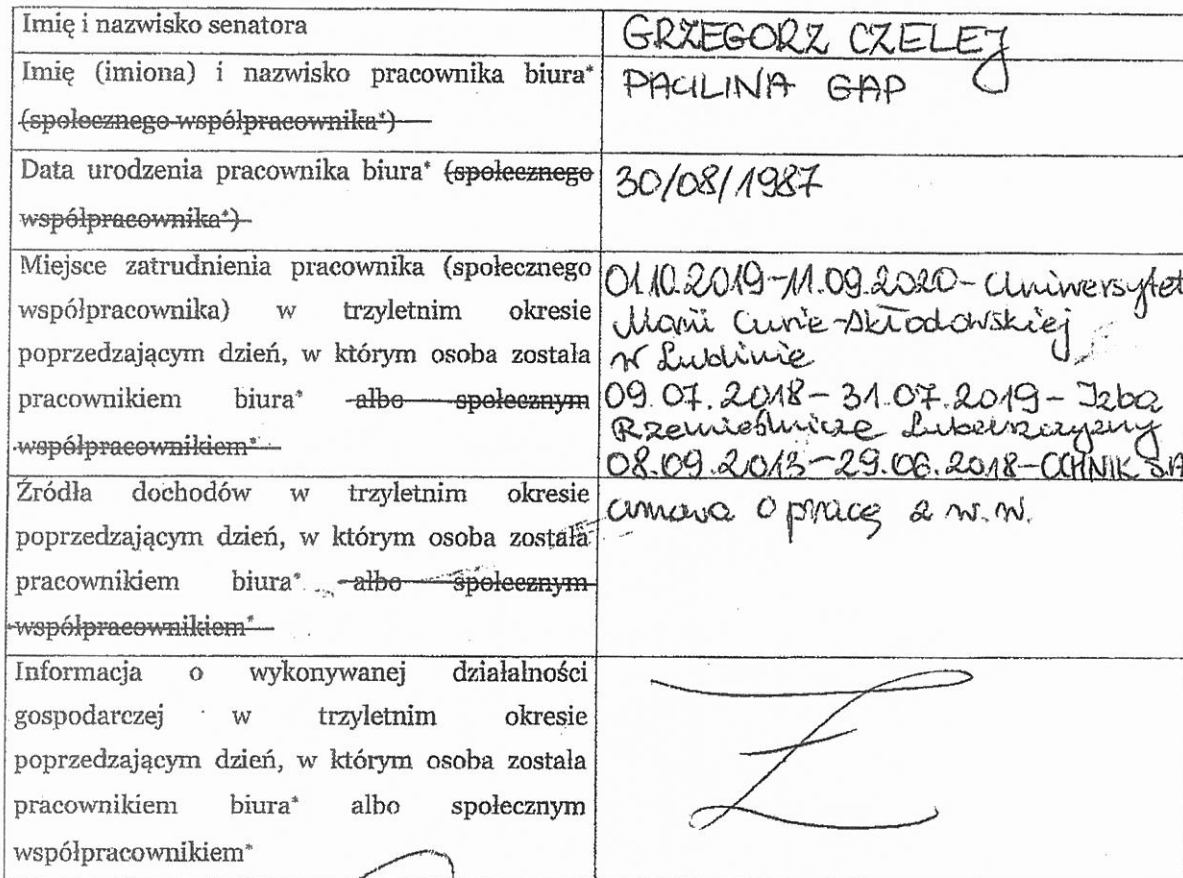 Imię i nazwisko senatora
GRZEGORZ CZELEJ
Imię (imiona) i nazwisko pracownika biura*
(społecznego współpracownika*)
PAULINA GAP
Data urodzenia pracownika biura* (społecznego
współpracownika*)
30/08/1987
Miejsce zatrudnienia pracownika (społecznego
współpracownika) w trzyletnim okresie
poprzedzającym dzień, w którym osoba została
pracownikiem biura* albo społecznym
współpracownikiem*
01.10.2019-11.09.2020- Uniwersytet
Marii Curie-Skłodowskiej
w Lublinie
09.07.2018- 31.07.2019- Izba
Rzemieślnicza Lubelszczyzny
08.09.2013-29.06.2018-OCHNIK S.A
Źródła dochodów w trzyletnim okresie
poprzedzającym dzień, w którym osoba została
pracownikiem biura* albo społecznym
współpracownikiem*
umowa o pracę z w.w.
Informacja o wykonywanej działalności
gospodarczej w trzyletnim okresie
poprzedzającym dzień, w którym osoba została
pracownikiem biura* albo społecznym
współpracownikiem*